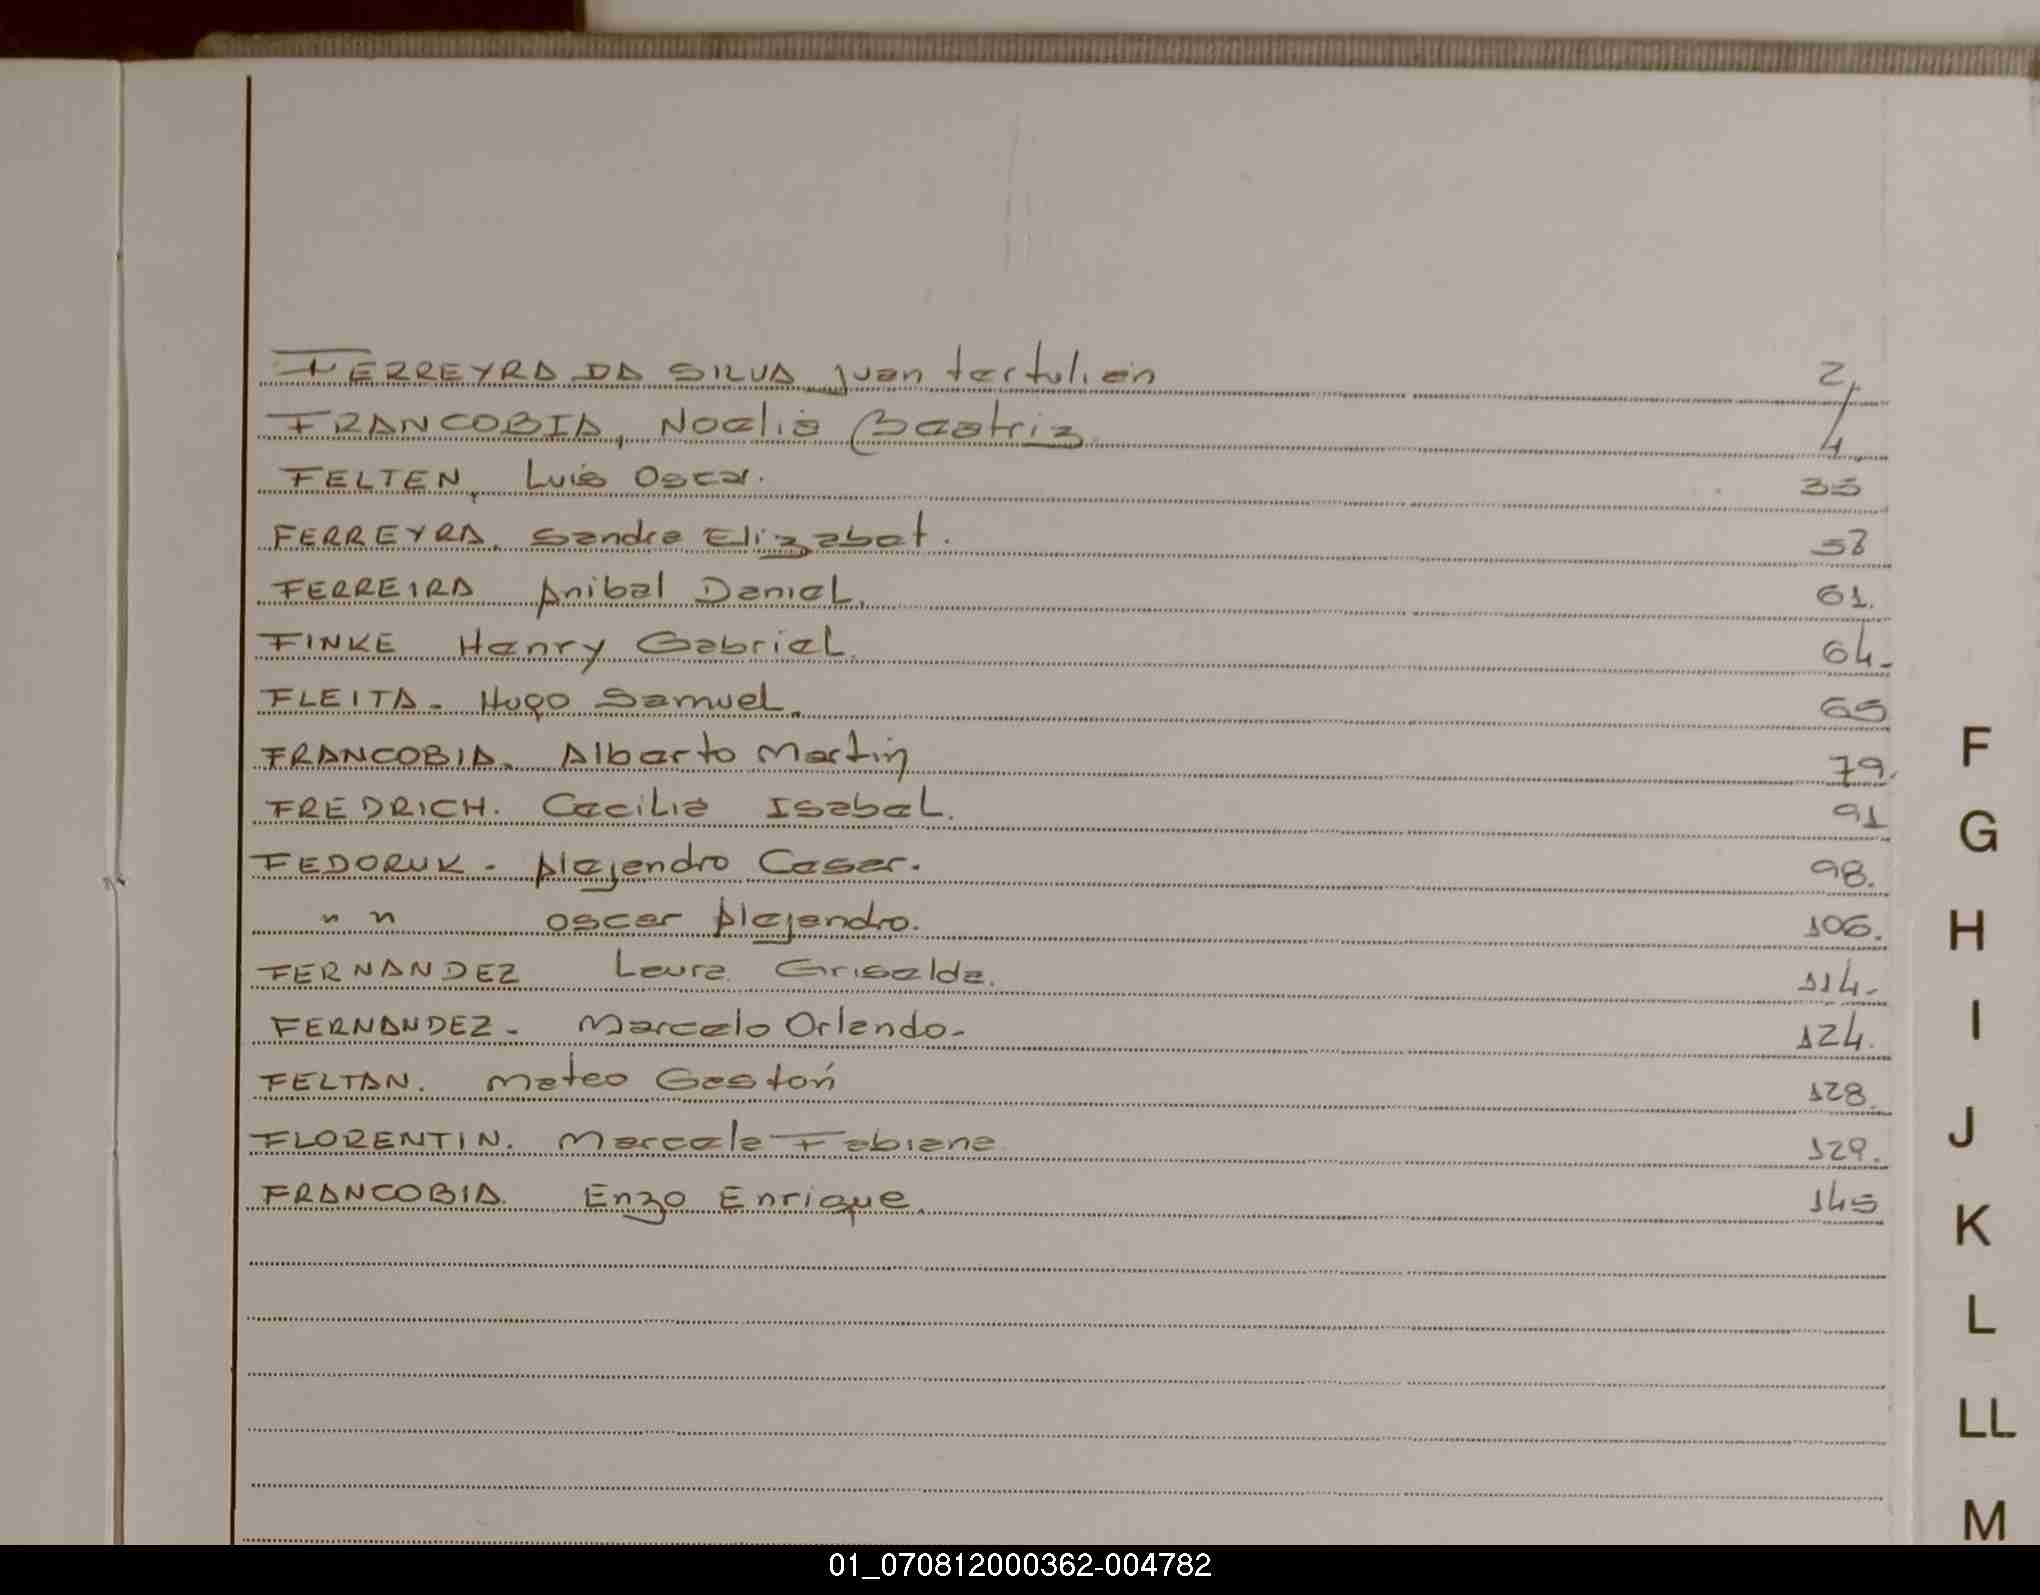 FERREYRA DA SILVA Juan tertulian 2
FRANCOBIA, Noelia Beatriz. 4
FELTEN, Luis Oscar. 35
FERREYRA. Sandra Elizabet. 58
FERREIRA Anibal Daniel. 61.
FINKE Henry Gabriel. 64.
FLEITA. Hugo Samuel. 65
FRANCOBIA. Alberto Martin 79.
FREDRICH. Cecilia Isabel. 91
FEDORUK. Alejandro Cesar. 98.
" " oscar Alejandro. 106.
FERNANDEZ Laura Griselda. 114.
FERNANDEZ. Marcelo Orlando. 124.
FELTAN. Mateo Gastón 128.
FLORENTIN. Marcela Fabiana 129.
FRANCOBIA. Enzo Enrique. 145
F
G
H
I
J
K
L
LL
M
01_070812000362-004782